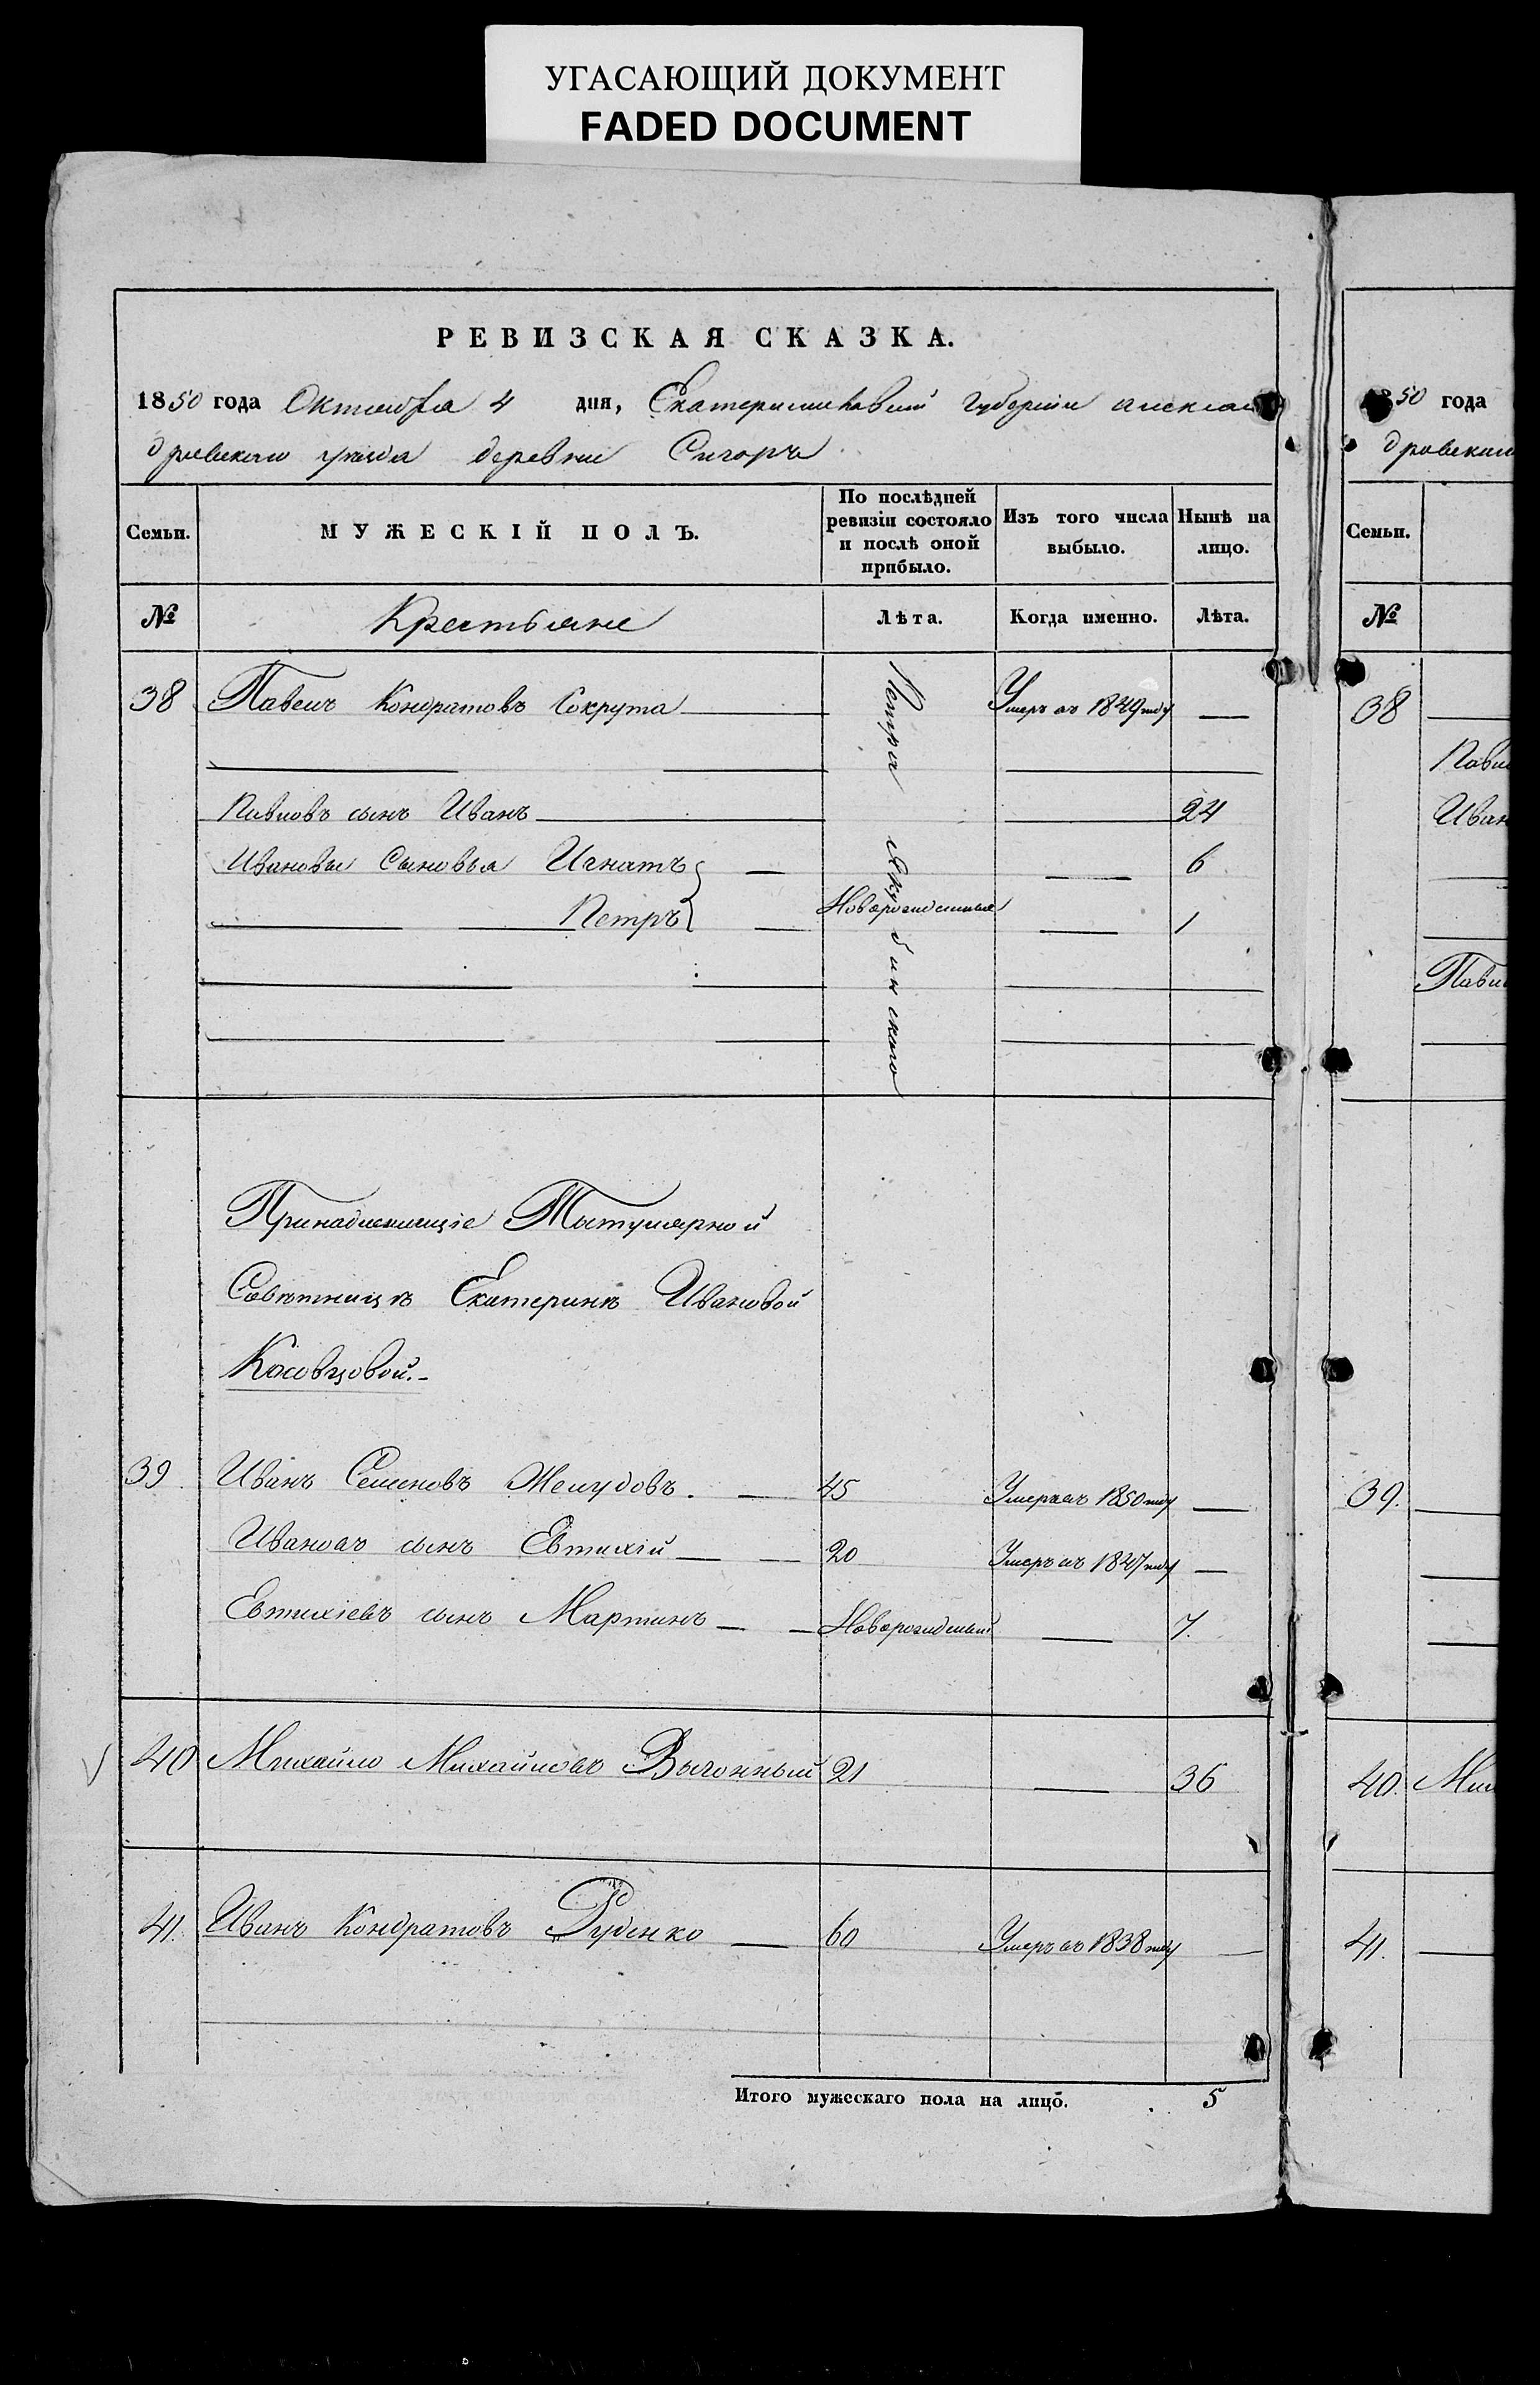 УГАСАЮЩИЙ ДОКУМЕНТ
FADED DOCUMENT
РЕВИЗСКАЯ СКАЗКА.
1850 года Октября 4 дня, Екатеринославской Губернии Алексан
дровского уезда деревни
Семьи. МУЖЕСКІЙ ПОЛЪ. По послѣдней ревизіи состояло и послѣ оной прибыло. Изъ того числа выбыло. Нынѣ на лицо.
№ Крестьяне Лѣта. Когда именно. Лѣта.
38 Павелъ Кондратовъ Сокрута Умеръ въ 1849 году —
Павловъ сынъ Иванъ 24
Ивановы Сыновья Игнатъ — 6
Петръ — Новорожденные 1
Петра
Принадлежащіе Титулярной
Совѣтницѣ Екатеринѣ Ивановой
Косовцовой.
39. Иванъ Семеновъ Желудовъ. — 45 Умеръ въ 1850 году —
Ивановъ сынъ Евтихій — 20 Умеръ въ 1847 году —
Евтихіевъ сынъ Мартинъ — Новорожденный — 7.
40 Михайло Михайловъ Вычонный 21 — 36
41. Иванъ Кондратовъ Руденко — 60 Умеръ въ 1838 году —
Итого мужескаго пола на лицо. 5
50 года
дровского
Семьи.
№
38
Иван
39.
40.
41.